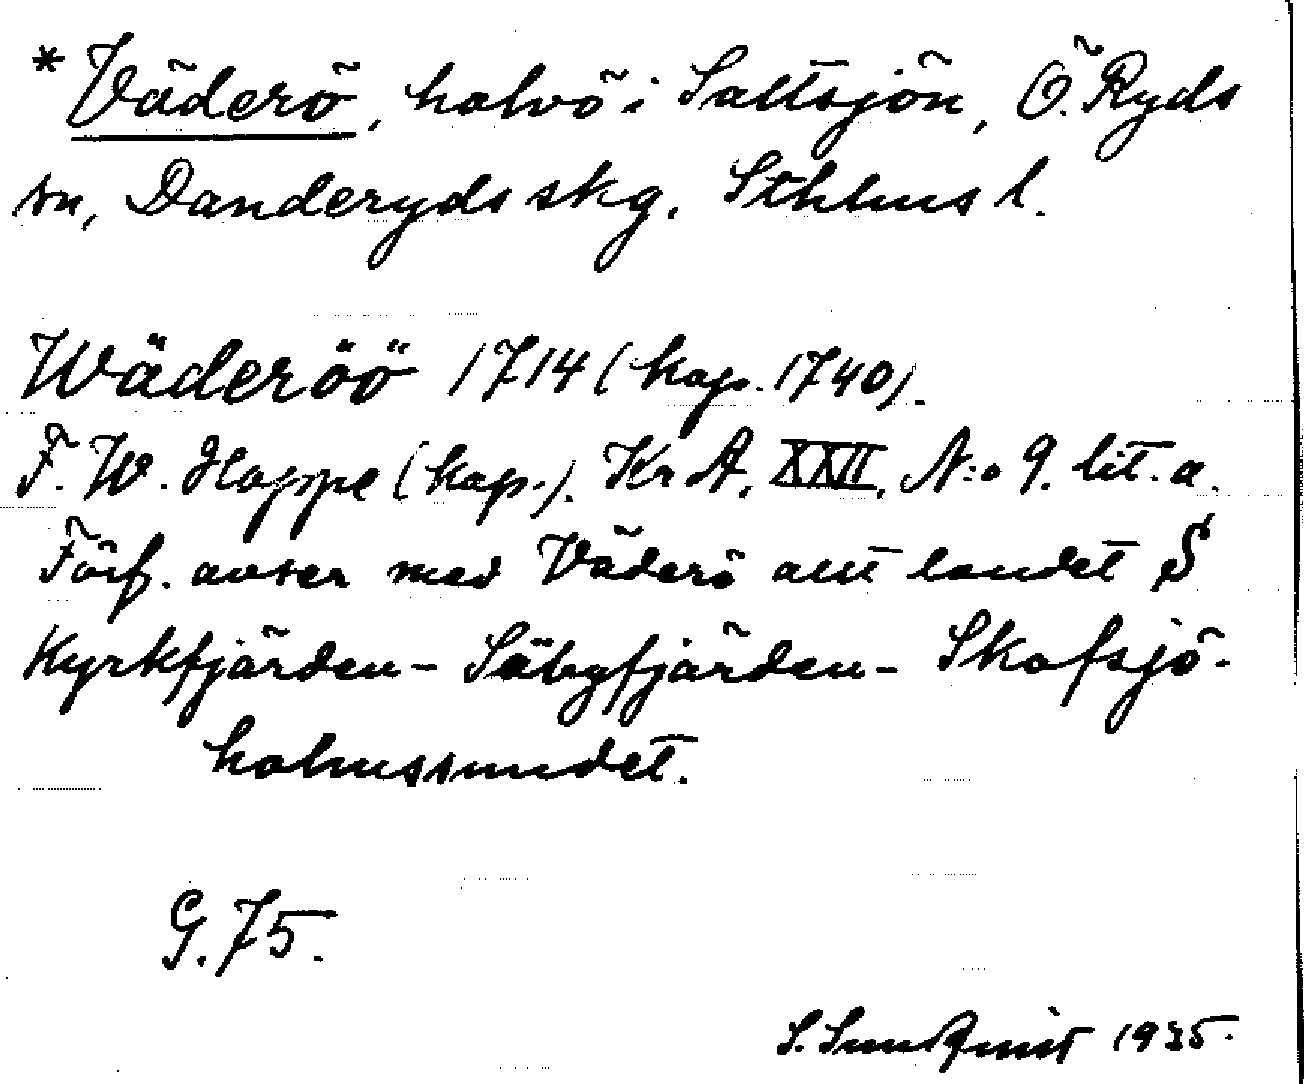 * Väderö, halvö i Saltsjön, Ö. Ryds
sn, Danderyds skg, Sthlms l.
Wäderöö 1714 (kop. 1740).
F. W. Hoppe (kop.). Kr A, XXII, N:o 9. lit. a.
Förf. avser med Väderö allt landet S
Kyrkfjärden - Säbyfjärden - Skafsjö-
holmssundet.
G. 75.
S. Sundqvist 1935.